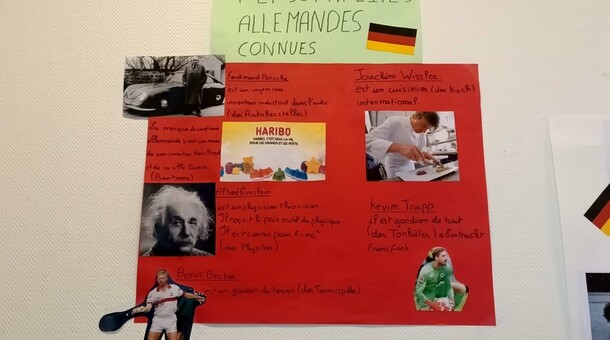 PERSONNALITÉS
ALLEMANDES
CONNUES
Ferdinand Porsche
est un ingénieur
inventeur industriel dans l'auto.
(der Autohersteller)
La marque de
allemande
de son inventeur Hans Riegel
et de sa ville Bonn.
(Bonbons)
HARIBO
HARIBO, C'EST BEAU LA VIE,
POUR LES GRANDS ET LES PETITS.
Albert Einstein
est un physicien théoricien
Il reçoit le prix nobel de physique.
Il est connu pour E=mc²
(der Physiker)
Boris Becker
est un joueur de tennis (der Tennisspieler)
Joachim Wissler
est un cuisinier (der Koch)
international.
Kevim Trapp
il est gardien de but
(der Torhüter) a Eintracht
Francfort